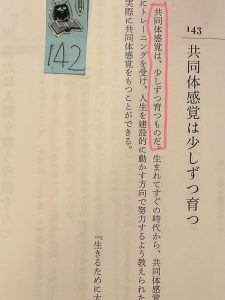 143
共同体感覚は少しずつ育つ
共同体感覚は、少しずつ育つものだ。生まれてすぐの時代から、共同体感覚
にトレーニングを受け、人生を建設的に動かす方向で努力するよう教えられた
実際に共同体感覚をもつことができる。
『生きるために大
142